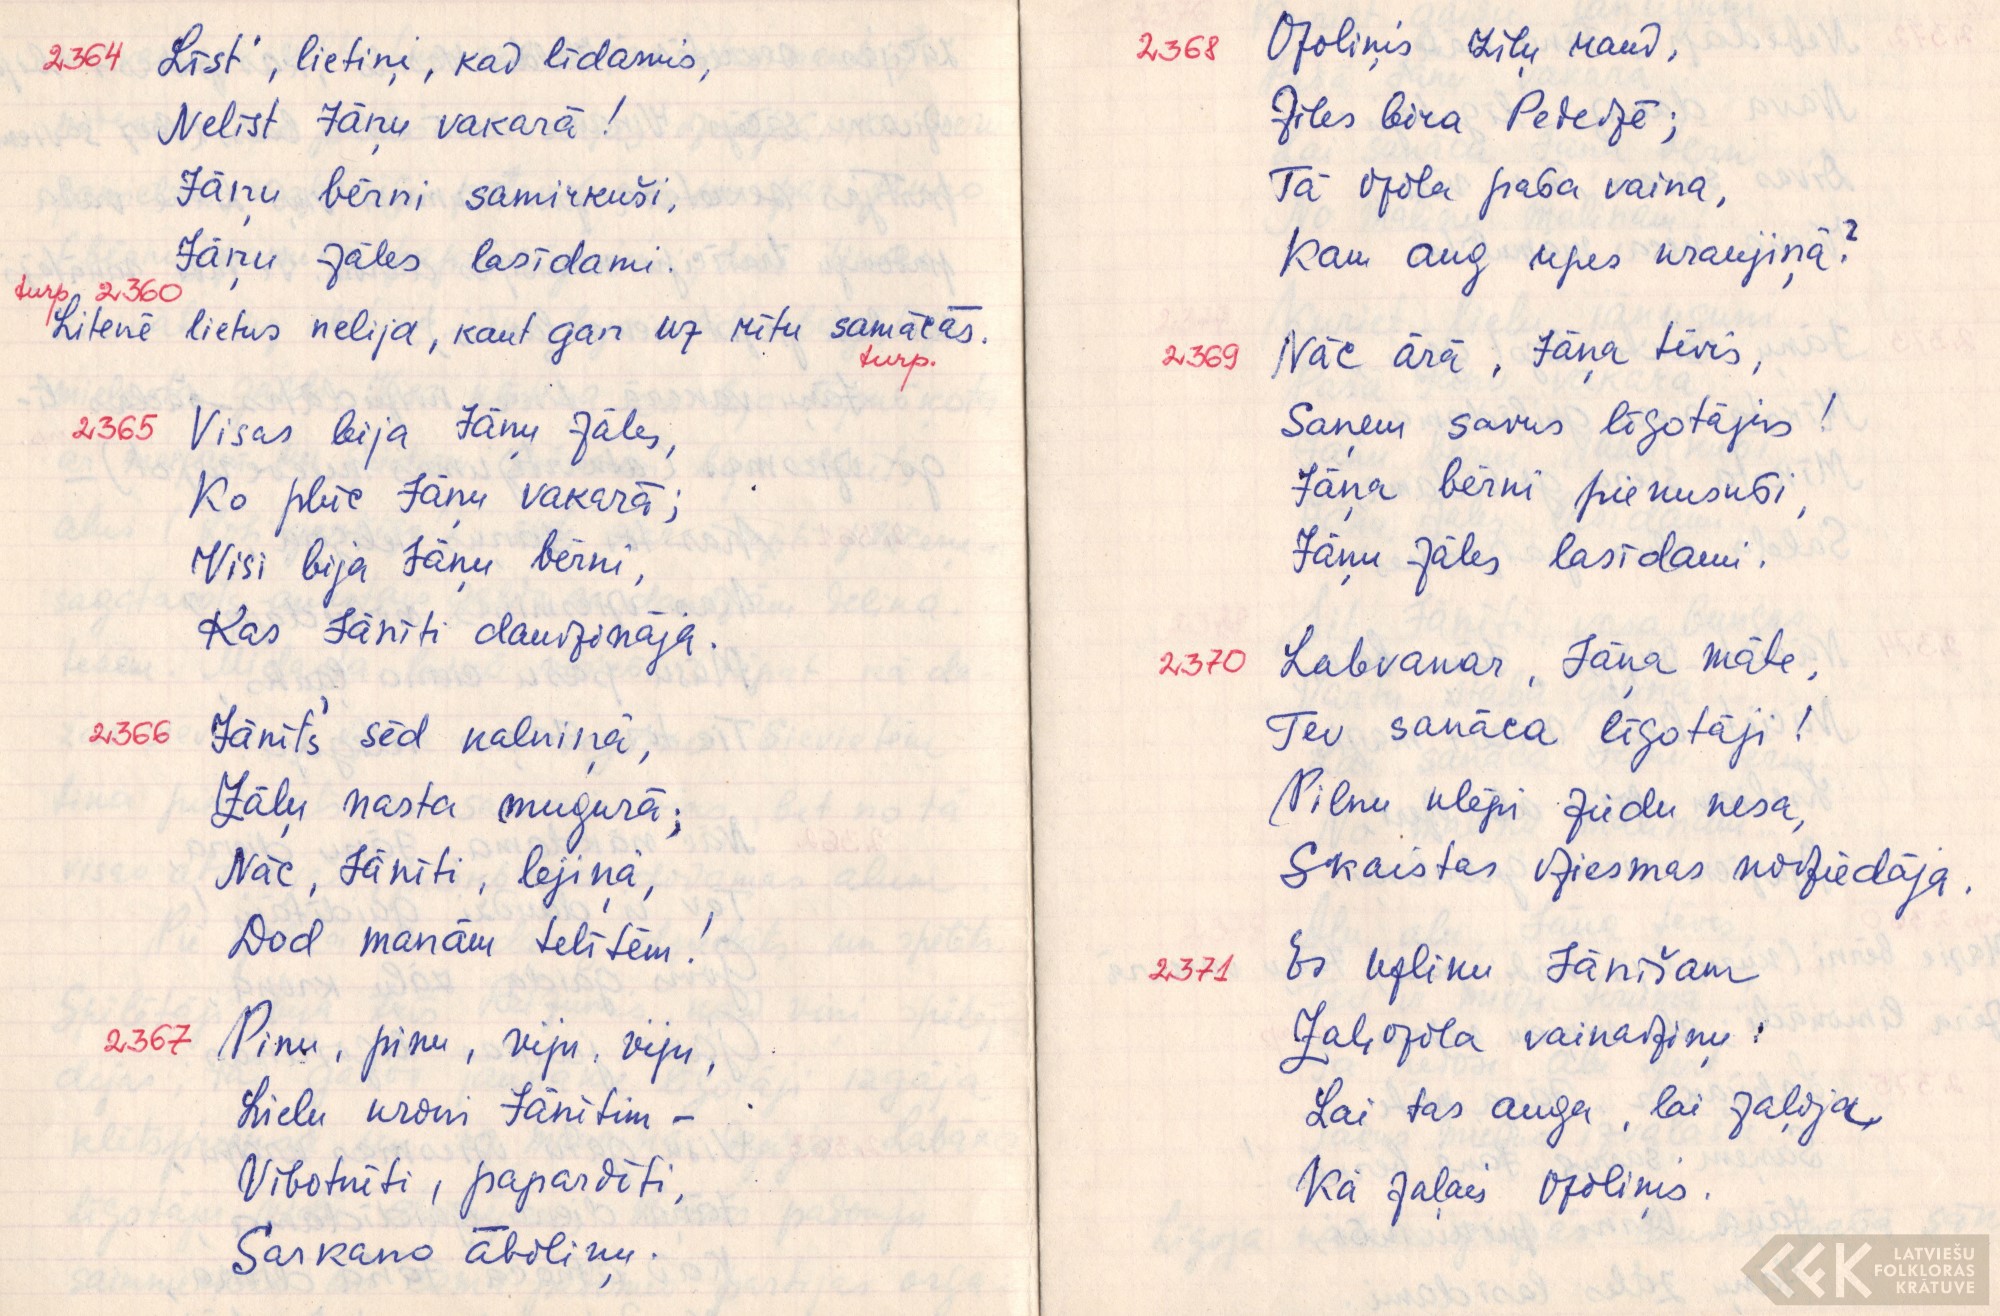 2364 Līst', lietiņi, kad līdamis,
Nelīst Jāņu vakarā!
Jāņu bērni samirkuši,
Jāņu zāles lasīdami.
turp. 2360
Litenē lietus nelija, kaut gan uz rītu samācās.
turp.
2365 Visas bija Jāņu zāles,
Ko plūc Jāņu vakarā;
Visi bija Jāņu bērni,
Kas Jānīti daudzināja.
2366 Jānīts' sēd kalniņā,
Zāļu nasta mugurā;
Nāc, Jānīti, lejiņā,
Dod manām telītēm!
2367 Pinu, pinu, viju, viju,
Lielu kroni Jānītim –
Vībotnīti, papardīti,
Sarkano āboliņu.
2368 Ozoliņis zīļu raud,
Zīles bira Pededzē;
Tā ozola paša vaina,
Kam aug upes kraujiņā?
2369 Nāc ārā, Jāņa tēvis,
Saņem savus līgotājus!
Jāņa bērni piekusuši,
Jāņu zāles lasīdami.
2370 Labvakar, Jāņa māte,
Tev sanāca līgotāji!
Pilnu klēpi ziedu nesa,
Skaistas dziesmas nodziedāja.
2371 Es uzliku Jānīšam
Zaļozola vainadziņu:
Lai tas auga, lai zaļoja,
Kā zaļais ozoliņis.
LATVIEŠU
FOLKLORAS
KRĀTUVE